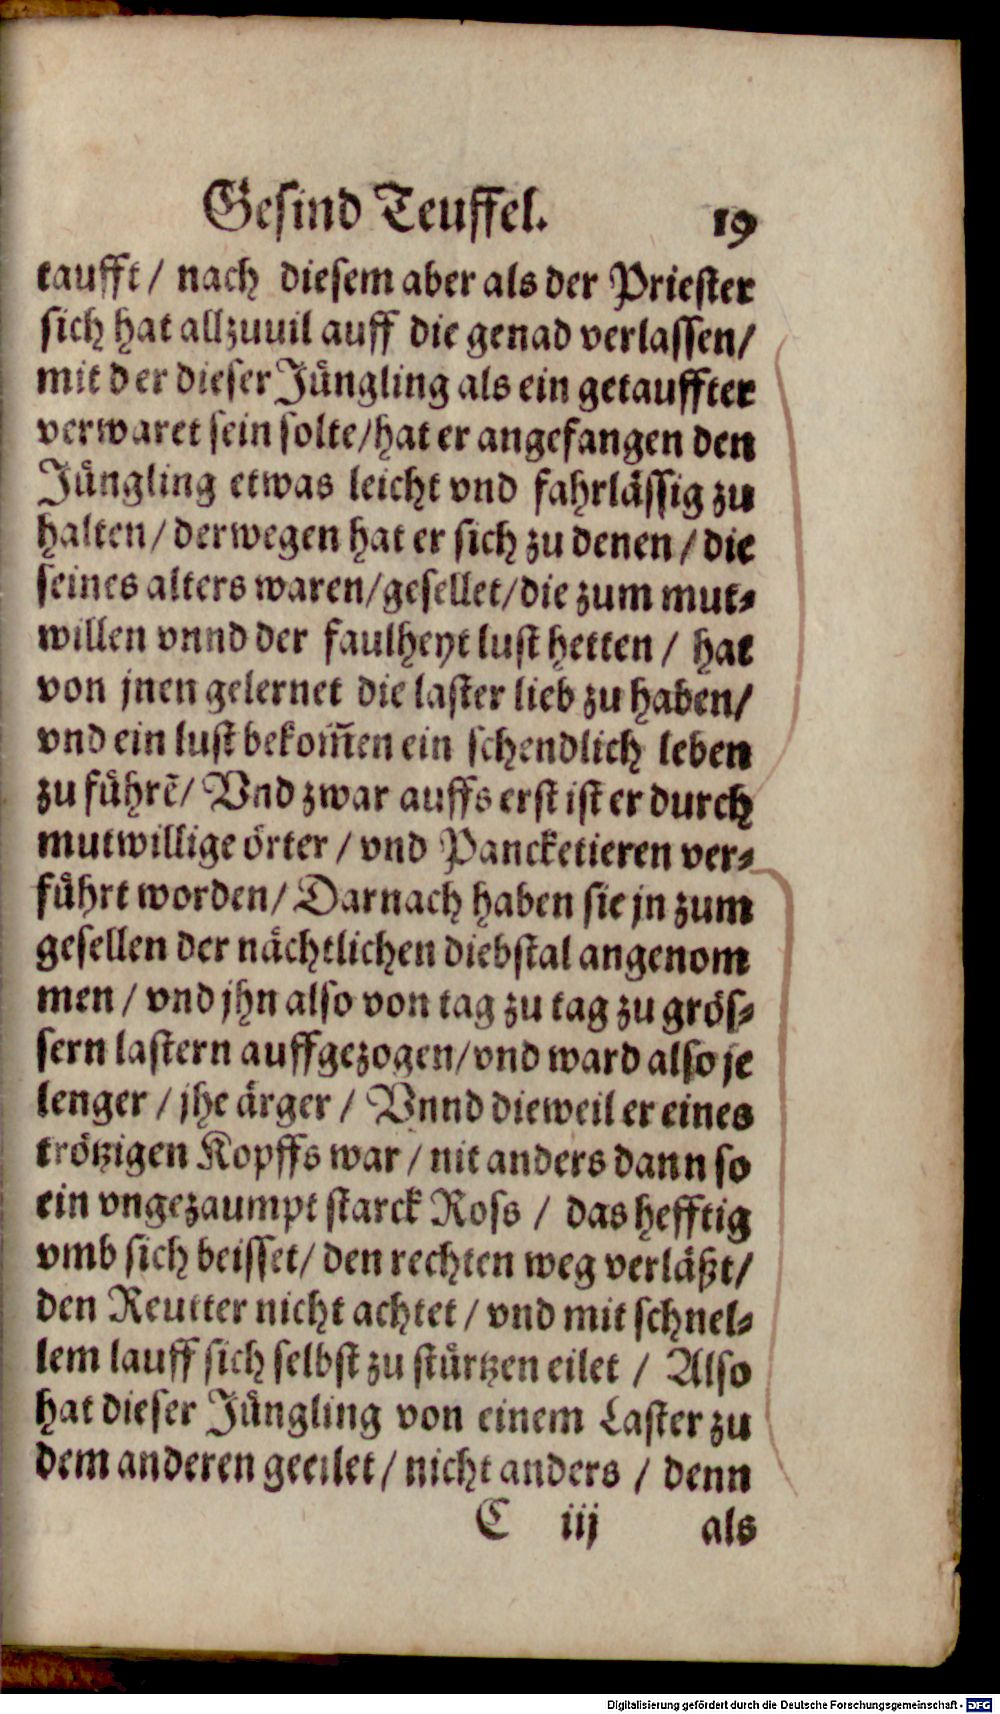 Gesind Teuffel. 19
taufft / nach diesem aber als der Priester
sich hat allzuuil auff die genad verlassen/
mit der dieser Jüngling als ein getauffter
verwaret sein solte/hat er angefangen den
Jüngling etwas leicht vnd fahrlässig zu
halten/derwegen hat er sich zu denen/die
seines alters waren/gesellet/die zum mut-
willen vnnd der faulheyt lust hetten / hat
von jnen gelernet die laster lieb zu haben/
vnd ein lust bekom̃en ein schendlich leben
zu führẽ/ Vnd zwar auffs erst ist er durch
mutwillige örter / vnd Pancketieren ver-
führt worden/ Darnach haben sie jn zum
gesellen der nächtlichen diebstal angenom
men / vnd jhn also von tag zu tag zu grös-
sern lastern auffgezogen/vnd ward also je
lenger / jhe ärger / Vnnd dieweil er eines
trötzigen Kopffs war / nit anders dann so
ein vngezaumpt starck Ross / das hefftig
vmb sich beisset/ den rechten weg verläßt/
den Reutter nicht achtet / vnd mit schnel-
lem lauff sich selbst zu stürtzen eilet / Also
hat dieser Jüngling von einem Laster zu
dem anderen geeilet/ nicht anders / denn
C iij als
Digitalisierung gefördert durch die Deutsche Forschungsgemeinschaft - DFG